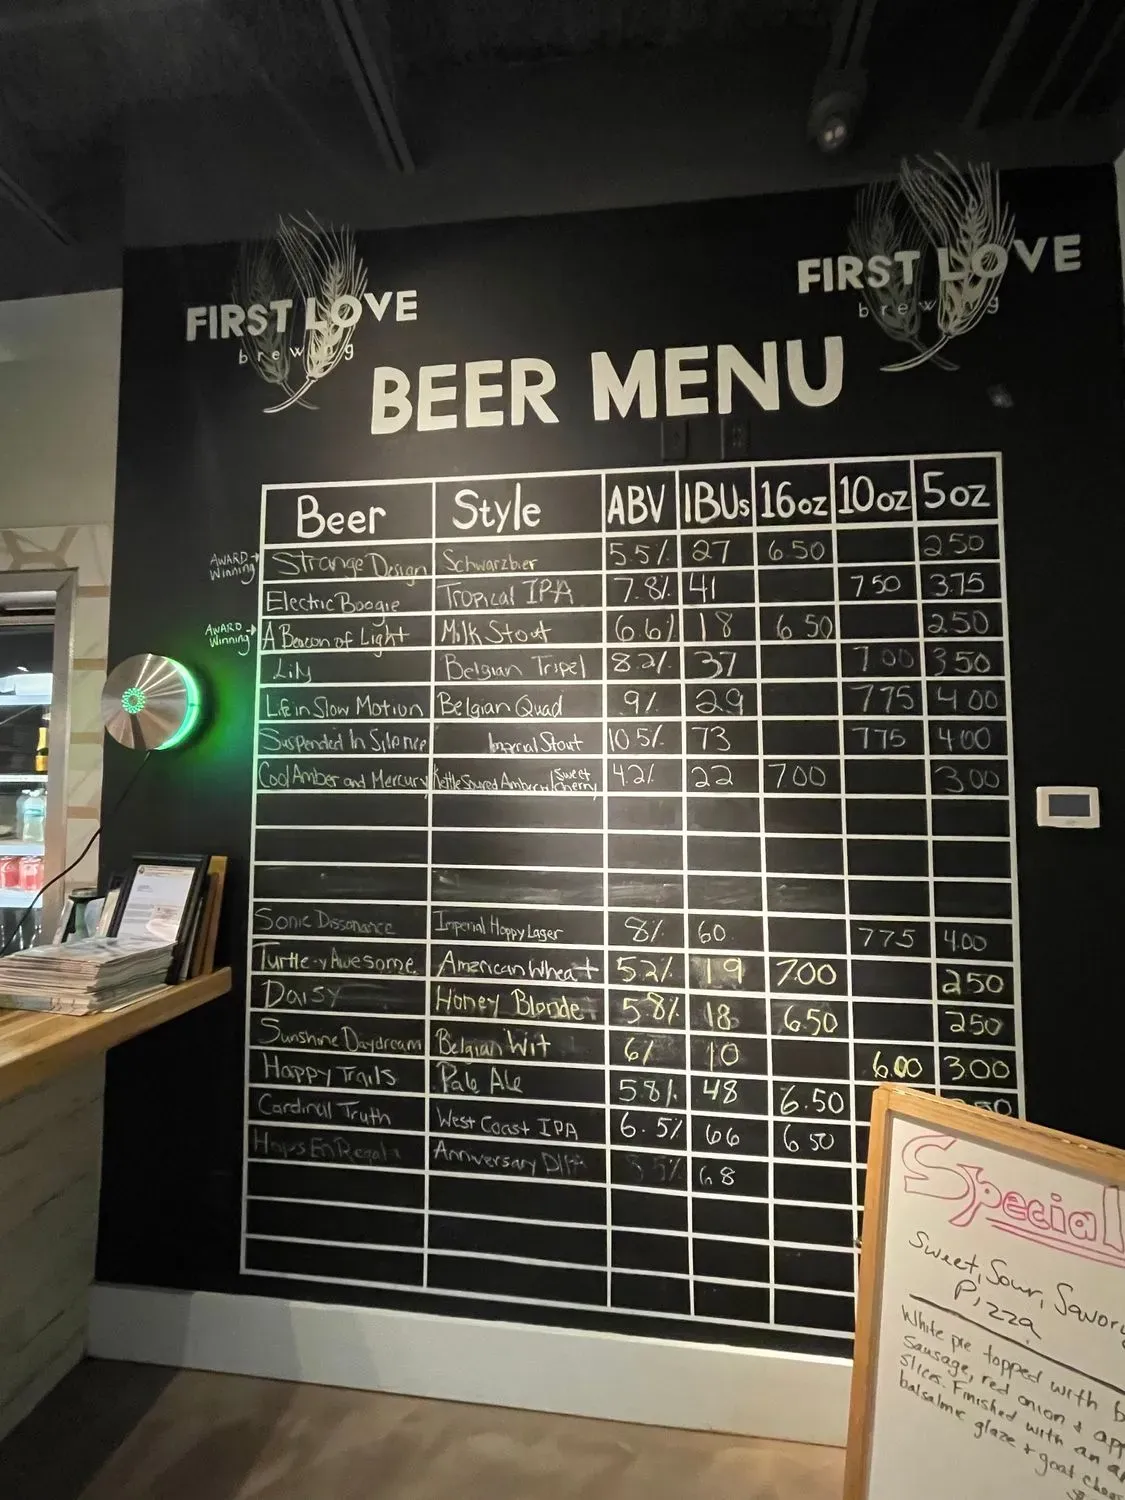 FIRST LOVE
brewing
FIRST LOVE
brewing
BEER MENU
Beer Style ABV IBUs 16oz 10oz 5oz
AWARD Winning Strange Design Schwarzbier 5.5% 27 6.50 2.50
Electric Boogie Tropical IPA 7.8% 41 7 50 3.75
AWARD Winning A Beacon of Light Milk Stout 6.6% 18 6 50 2.50
Lily Belgian Tripel 8.2% 37 7 00 3 50
Life in Slow Motion Belgian Quad 9% 29 7 75 4.00
Suspended In Silence Imperial Stout 10 5% 73 7 75 4 00
Cool Amber and Mercury Kettle Soured Amber w/ Sweet Cherry 4.2% 22 7 00 3.00
Sonic Dissonance Imperial Hoppy Lager 8% 60 7 75 4.00
Turtle-y Awesome American Wheat 5.2% 19 7.00 2.50
Daisy Honey Blonde 5.8% 18 6.50 2 50
Sunshine Daydream Belgian Wit 6% 10 6.00 3.00
Happy Trails Pale Ale 5.8% 48 6.50
Cardinal Truth West Coast IPA 6.5% 66 6 50
Hops En Regalia Anniversary DIPA 8 5% 68
Special
Sweet, Sour, Savory
Pizza
White pie topped with
sausage, red onion +
slices. Finished with an
balsalmic glaze + goat